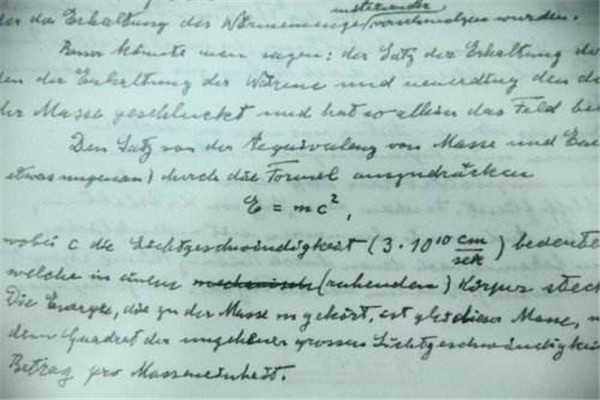 der das Erhaltung des Wärmemenge miteinander verschmolzen wurden.
Besser könnte man sagen: der Satz der Erhaltung de
den der Erhaltung der Wärme und neuerdings den de
der Masse geschluckt und hat so allein das Feld be
Den Satz von der Aequivalenz von Masse und Ene
etwas ungenau) durch die Formel auszudrücken
E = mc²,
wobei c die Lichtgeschwindigkeit (3 · 10¹⁰ cm/sek) bedeutet
welche in einem mechanisch (ruhenden) Körper steck
Die Energie, die zu der Masse m gehört, ist gleich dieser Masse, m
dem Quadrat der ungeheuer grossen Lichtgeschwindigkei
Betrag pro Masseneinheit.